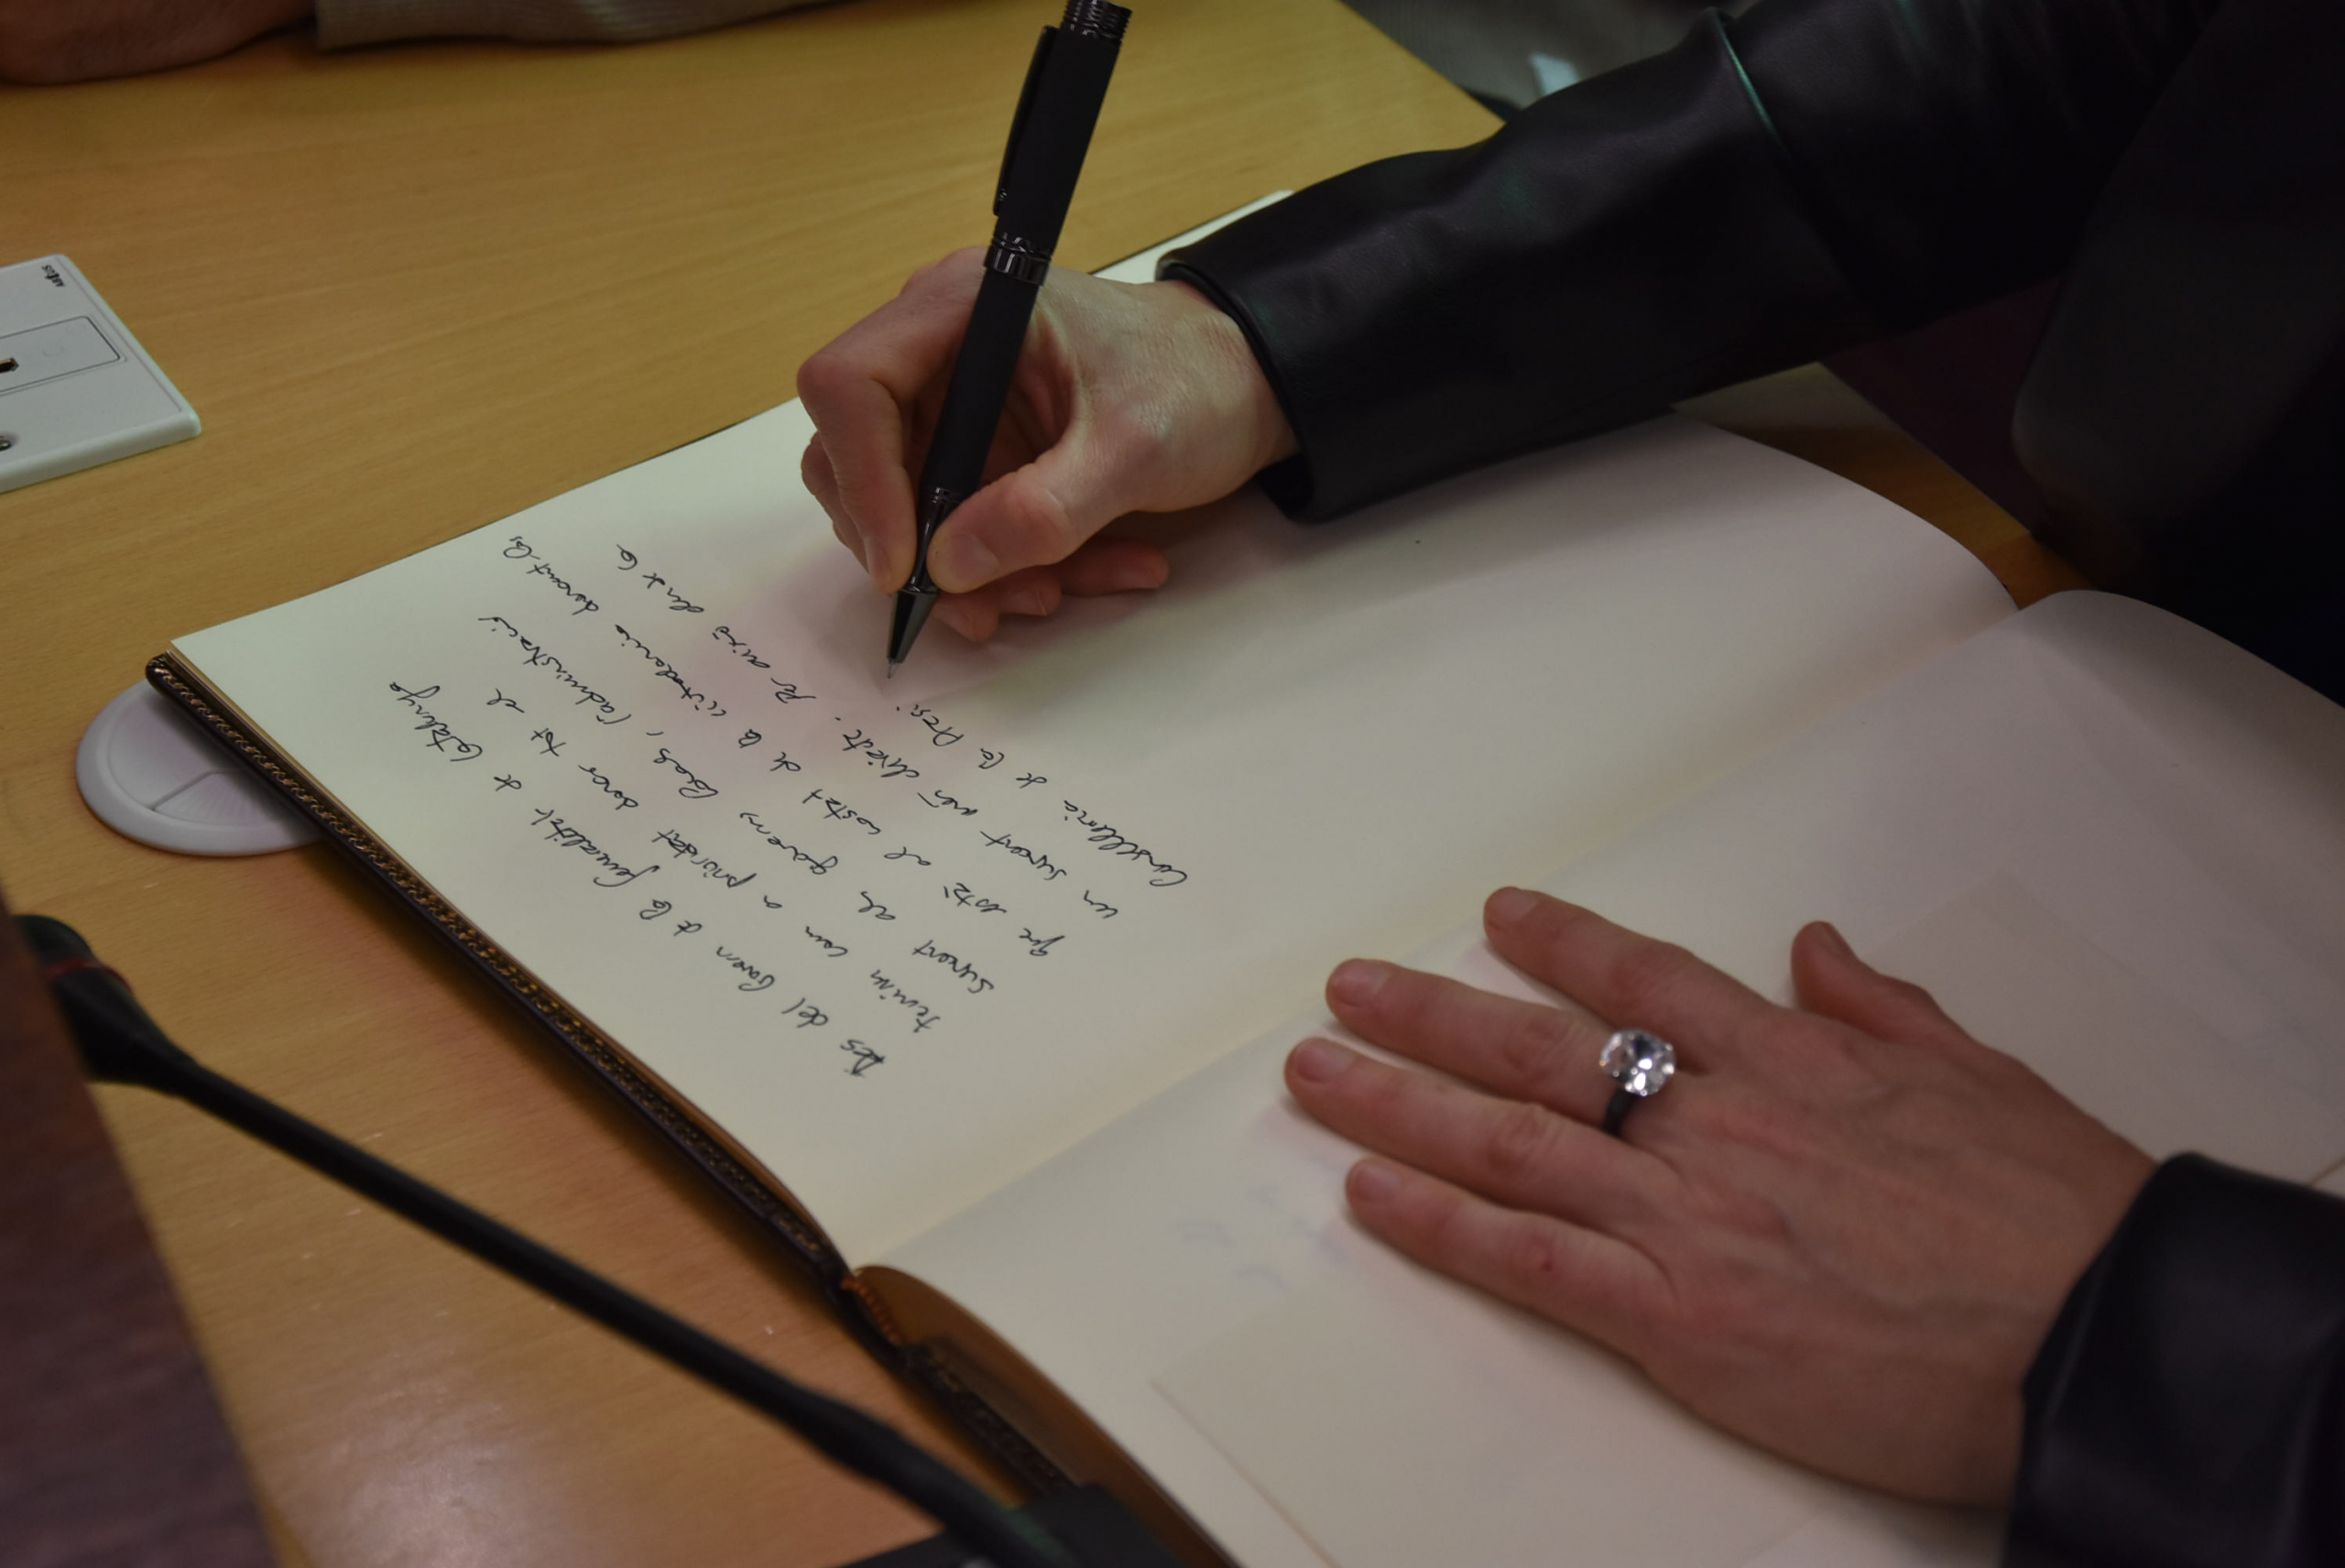 Des del Govern de la Generalitat de Catalunya
tenim com a prioritat donar tot el
suport als governs locals, l'administració
que està al costat de la ciutadania donant-los
un suport més directe. Per això des de la
Conselleria de la Presi